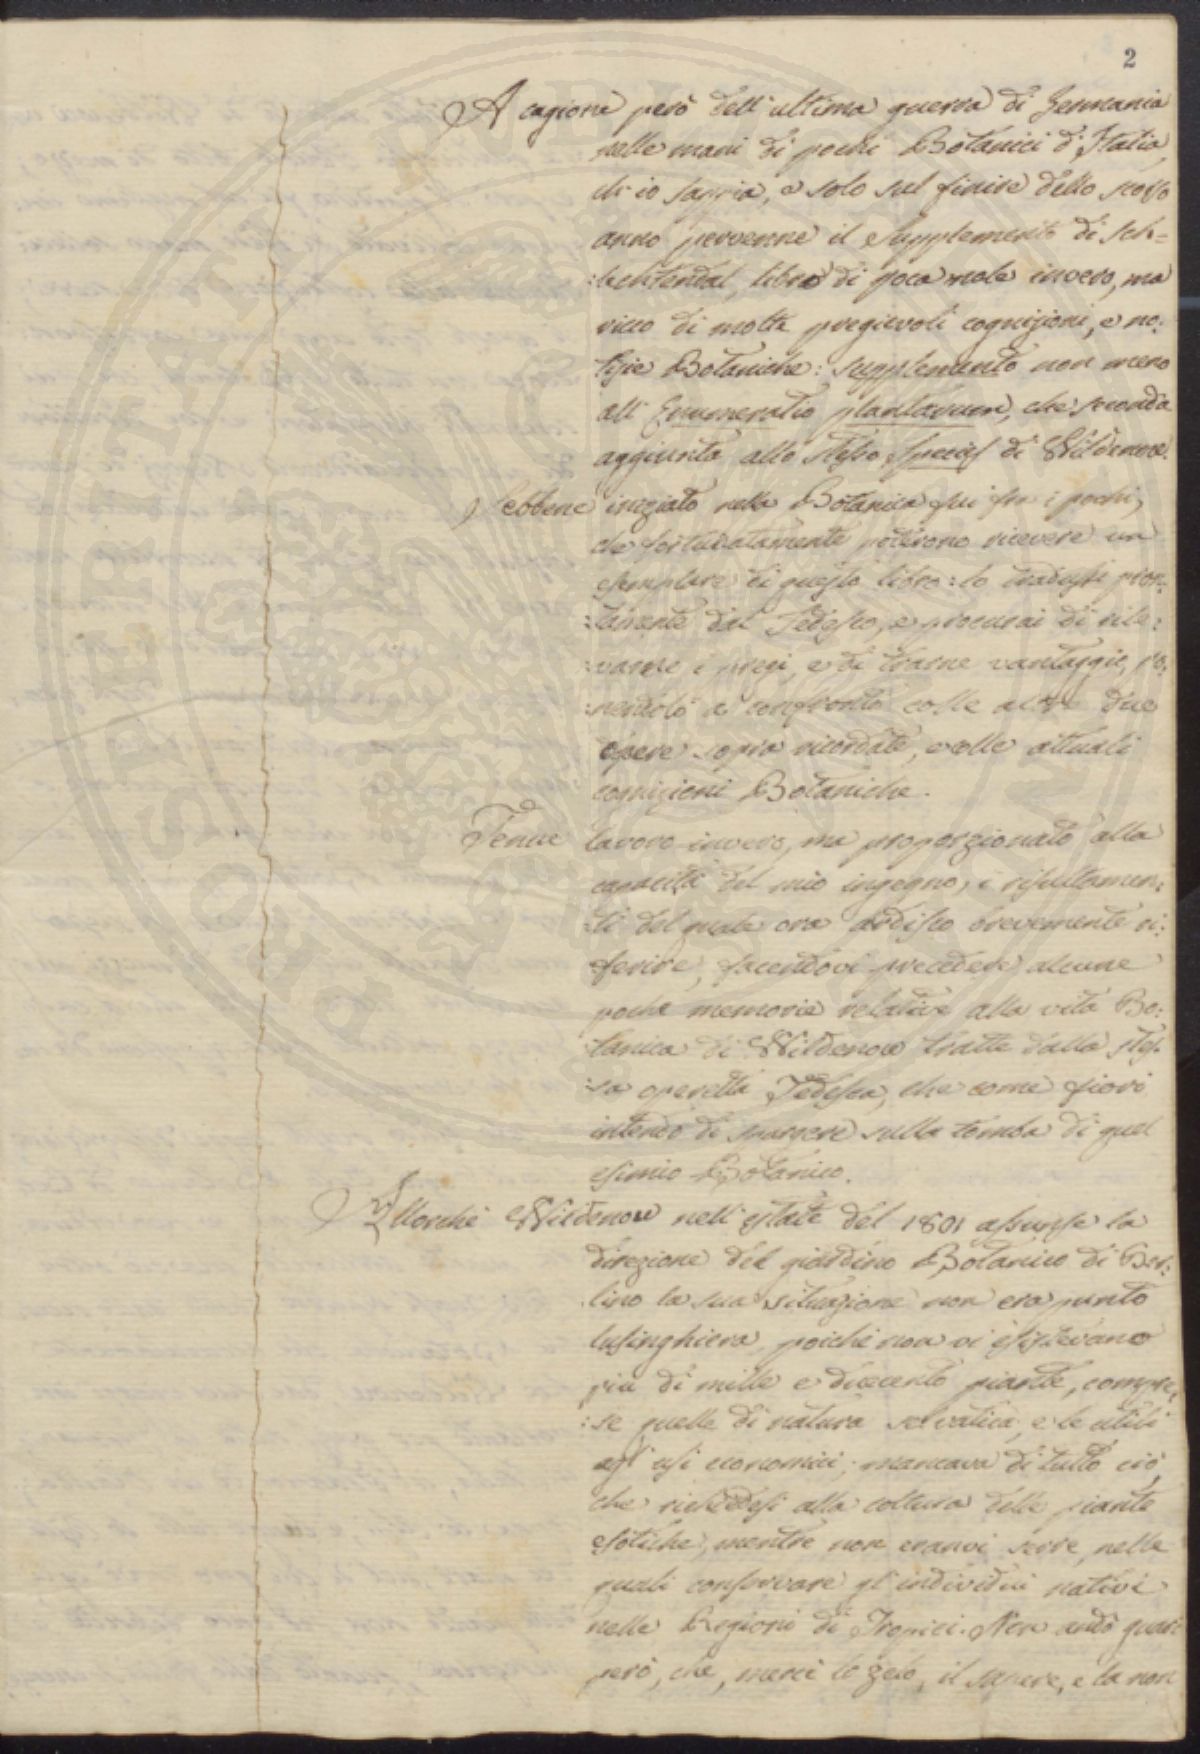 2
A cagione però dell'ultima guerra di Germania
nelle mani di pochi Botanici d'Italia,
ch'io sappia, e solo sul finire dello scorso
anno pervenne il Supplemento di Sch=
:lechtendal, libro di poca mole invero, ma
ricco di molte pregievoli cognizioni, e no:
tizie Botaniche: supplemento non meno
all'Enumeratio plantarum, che seconda
aggiunta allo stesso Species di Wildenow.
Sebbene iniziato nella Botanica fui fra i pochi,
che fortunatamente poterono ricevere un
esemplare di questo libro: lo tradussi pron:
:tamente dal Tedesco, e procurai di rile:
:varne i pregi, e di trarne vantaggio, po:
:nendolo a confronto colle altre due
opere sopra ricordate, e colle attuali
cognizioni Botaniche.
Tenue lavoro invero, ma proporzionato alla
capacità del mio ingegno, i risultamen:
:ti del quale ora ardisco brevemente ri:
ferire, facendovi precedere alcune
poche memorie relative alla vita Bo:
tanica di Wildenow tratte dalla stes:
:sa operetta Tedesca, che come fiori
intendo di spargere sulla tomba di quel
esimio Botanico.
Allorchè Wildenow nell'estate del 1801 assunse la
direzione del giardino Botanico di Ber:
:lino la sua situazione non era punto
lusinghiera, poichè non vi esistevano
più di mille e duecento piante, compre:
:se quelle di natura selvatica, e le utili
agl'usi economici; mancava di tutto ciò,
che richiedesi alla coltura delle piante
esotiche, mentre non eranvi serre, nelle
quali conservare gl'individui nativi
nelle Regioni di Tropici. Non andò quari
però, che, mercè lo zelo, il sapere, e la non